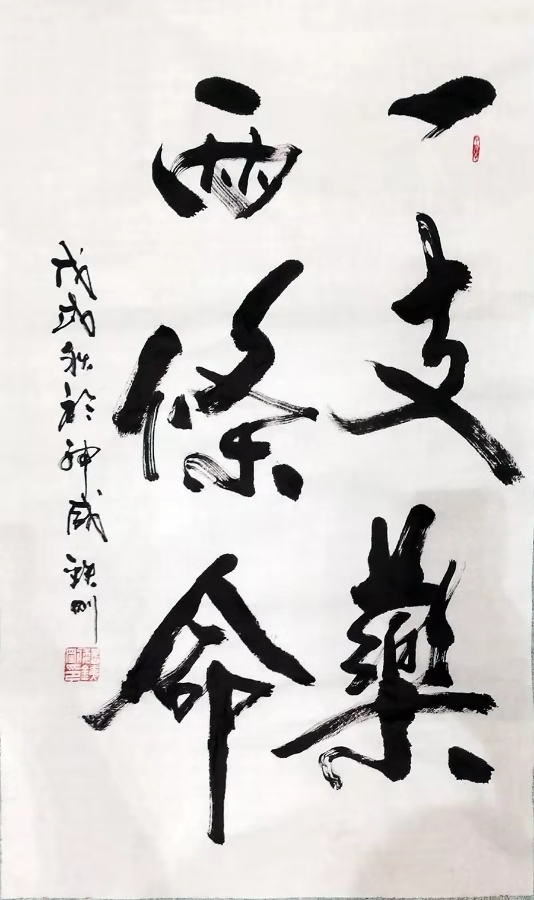 一支藥
兩條命
戊戌秋於神威 鐵